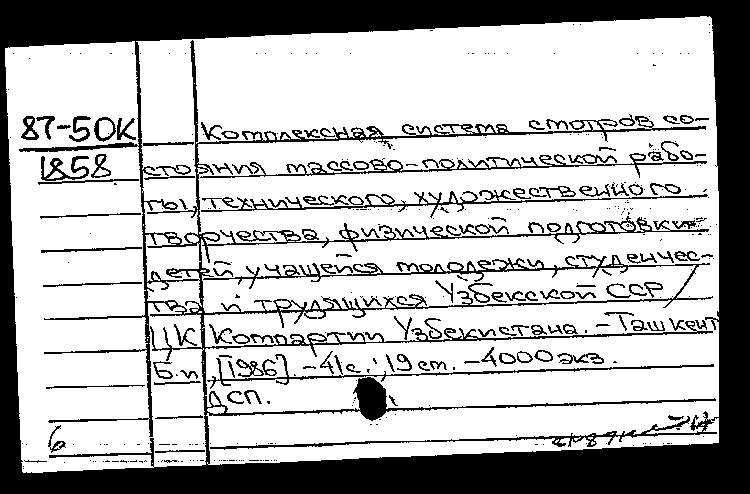 87-5ОК
1858
Комплексная система смотров со-
стояния массово-политической рабо-
ты, технического, художественного
творчества, физической подготовки
детей, учащейся молодежи, студенчес-
тва и трудящихся Узбекской ССР /
ЦК Компартии Узбекистана. - Ташкент:
Б.и., [1986]. - 41 с.; 19 см. - 4000 экз.
ДСП.
6